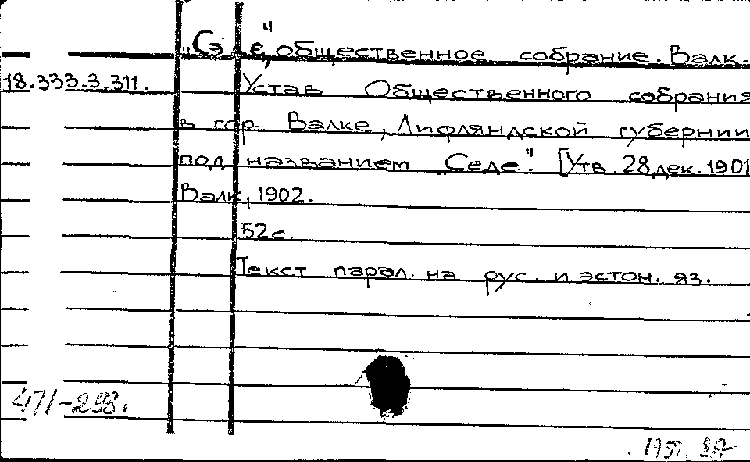 "Сэде", общественное собрание. Валк.
18.333.3.311. Устав Общественного собрания
в гор. Валке, Лифляндской губернии
под названием "Седе". [Утв. 28 дек. 1901
Валк, 1902.
52с.
Текст парал. на рус. и эстон. яз.
471-298.